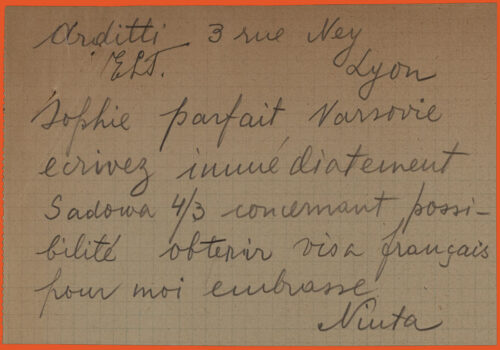 Arditti 3 rue Ney
ELT. Lyon
Sophie parfait, Varsovie
ecrivez immédiatement
Sadowa 4/3 concernant possi-
bilité obtenir visa français
pour moi embrasse
Niuta